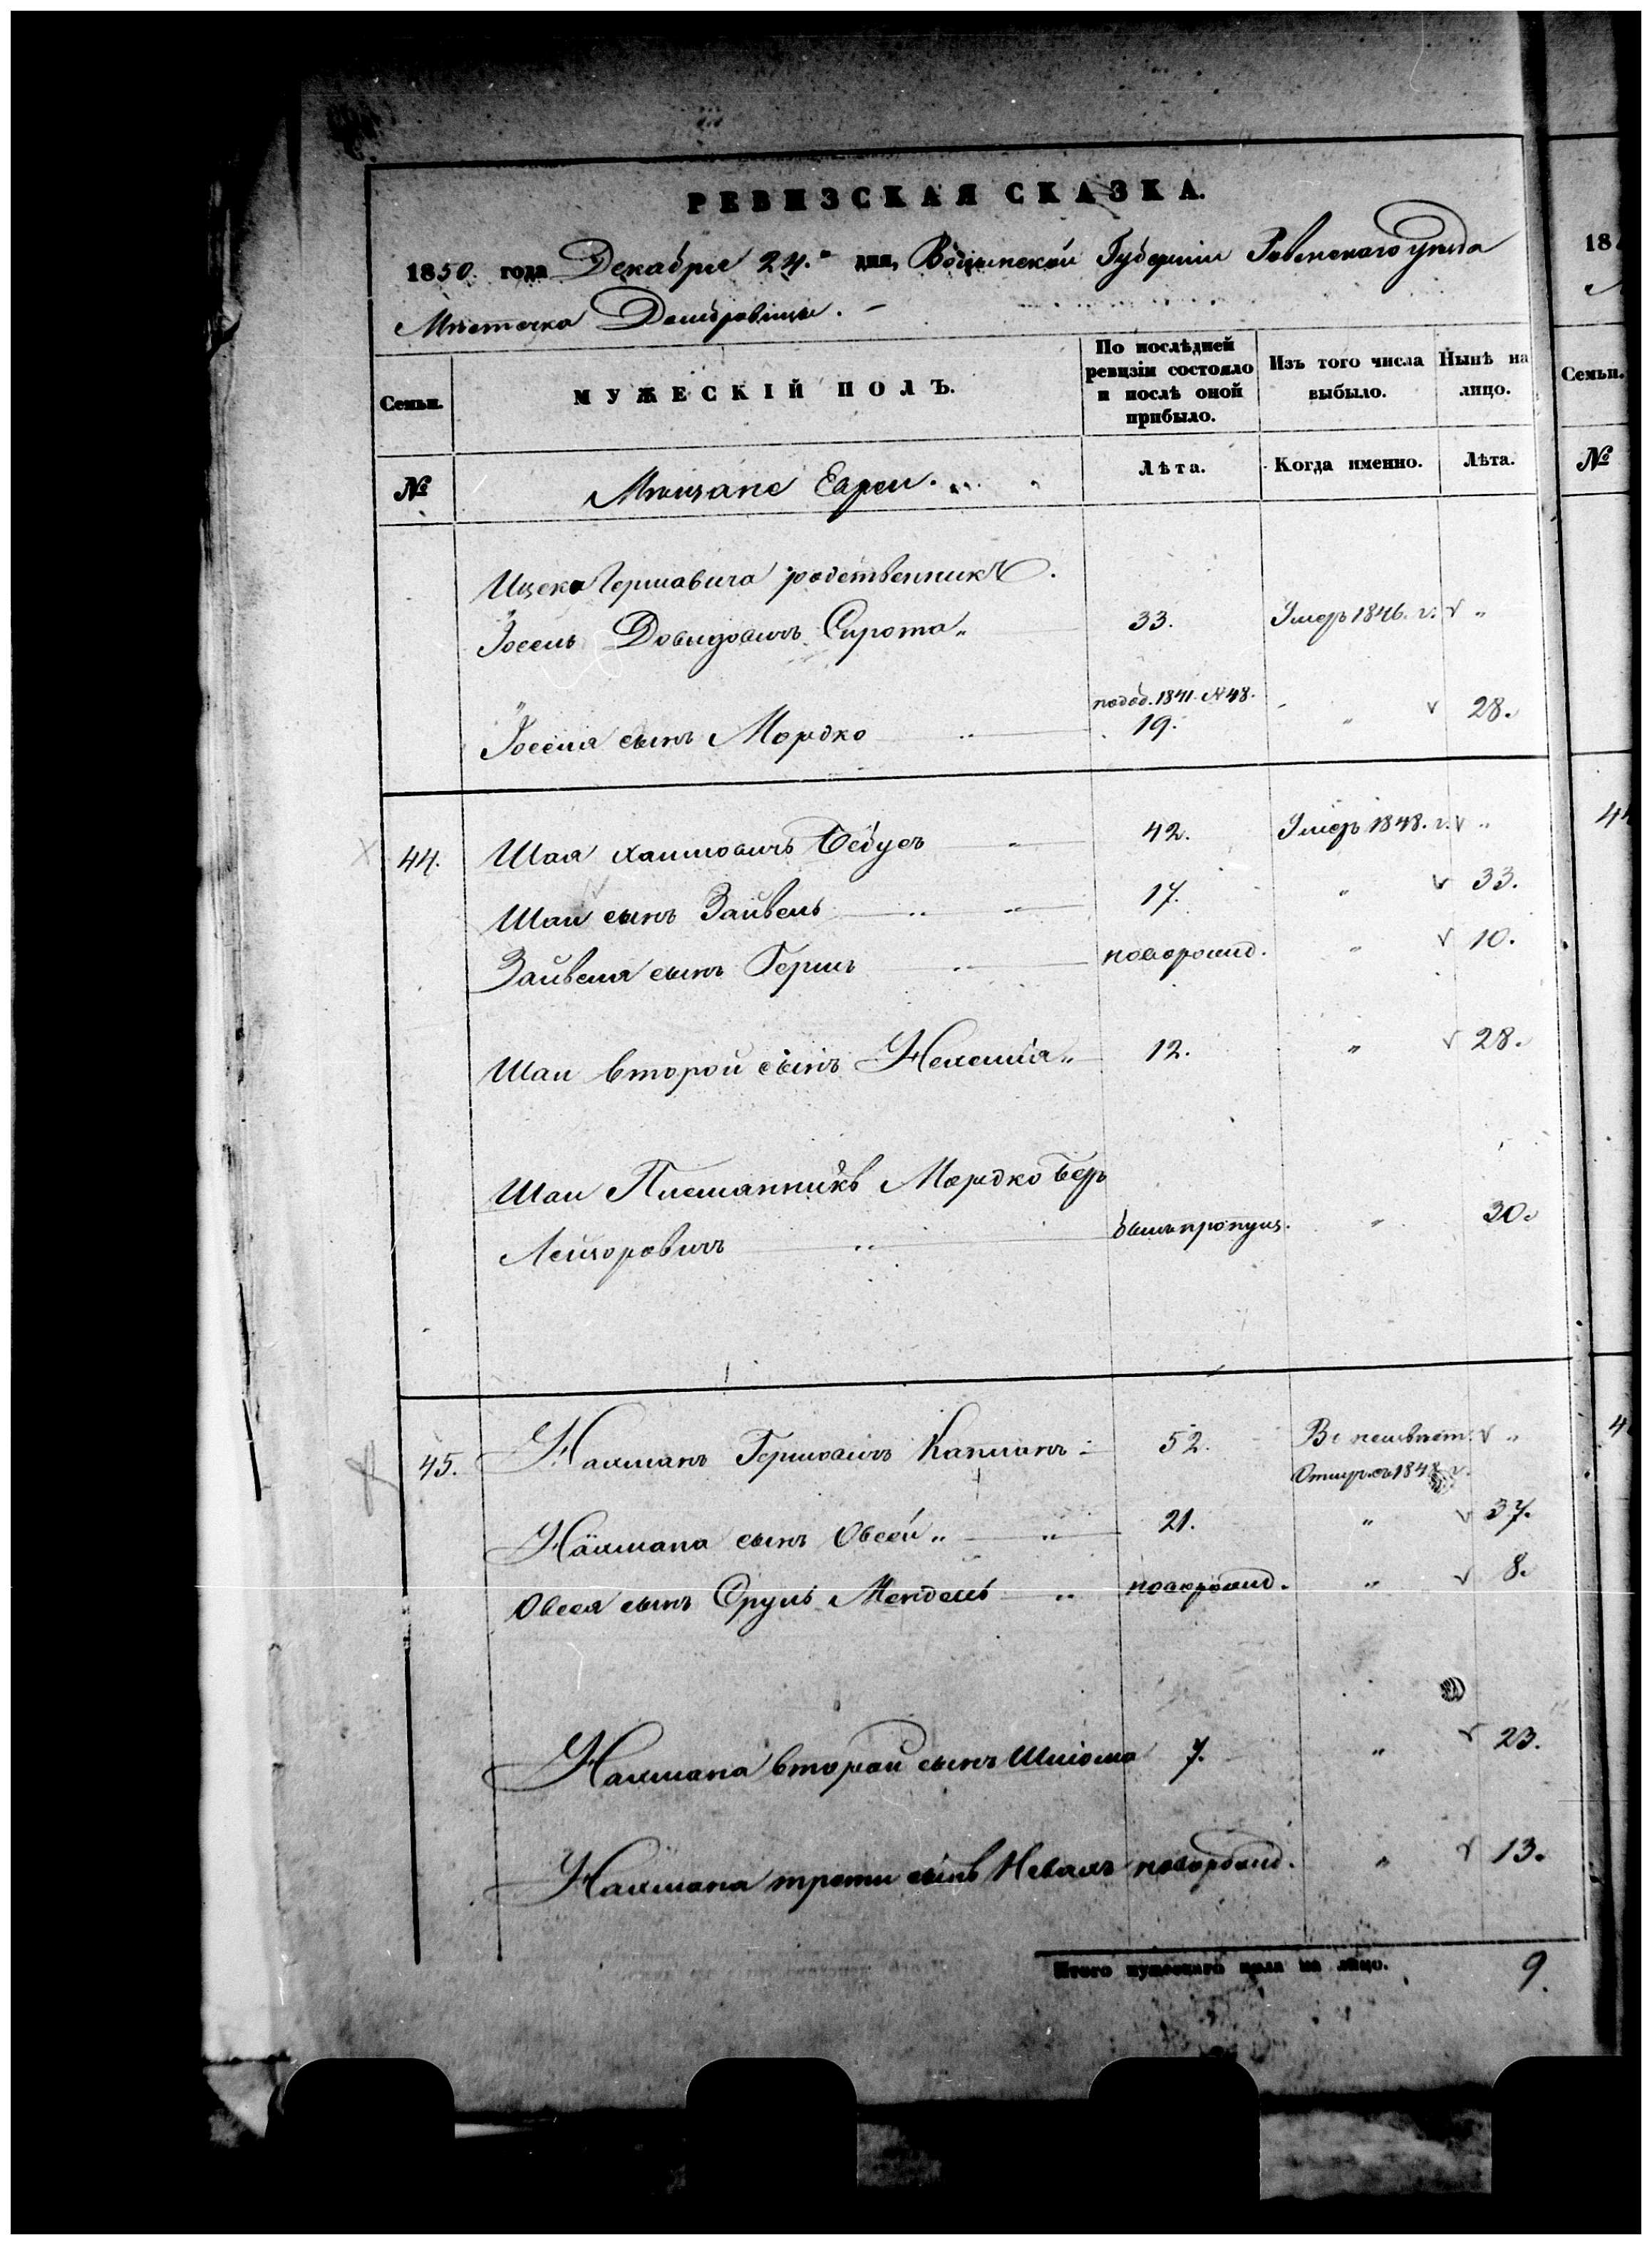 РЕВИЗСКАЯ СКАЗКА.
1850. года Декабря 24.го дня, Волынской Губерніи Ровенскаго уезда
Мѣстечка Домбровицы.
Семьи.
МУЖЕСКІЙ ПОЛЪ.
По послѣдней ревизіи состояло и послѣ оной прибыло.
Изъ того числа выбыло.
Нынѣ на лицо.
№
Мѣщане Евреи.
Лѣта.
Когда именно.
Лѣта.
Ицека Гершовича родственникъ.
Іосель Довидовичъ Сирота 33. Умеръ 1846. г. "
подод. 1841. №48.
Іоселя сынъ Мордко 19. " 28.
44. Шая Хаимовичъ 42. Умеръ 1848. г. "
Шаи сынъ Зайвель 17. " 33.
Зайвеля сынъ Гершъ новорожд. " 10.
Шаи второй сынъ Нехемія 12. " 28.
Шаи Племянникъ Мордко Беръ
Лейзоровичъ былъ пропущ. " 30.
45. Нахманъ Гершовичъ Капланъ 52. "
1848 г.
Нахмана сынъ Овсей 21. " 37.
Овсея сынъ Сруль Мендель новорожд. " 8.
Нахмана второй сынъ Шліома 7. " 23.
Нахмана трети сынъ новорожд. " 13.
Итого мужескаго пола на лицо. 9.
18
Семьи.
№
44
4